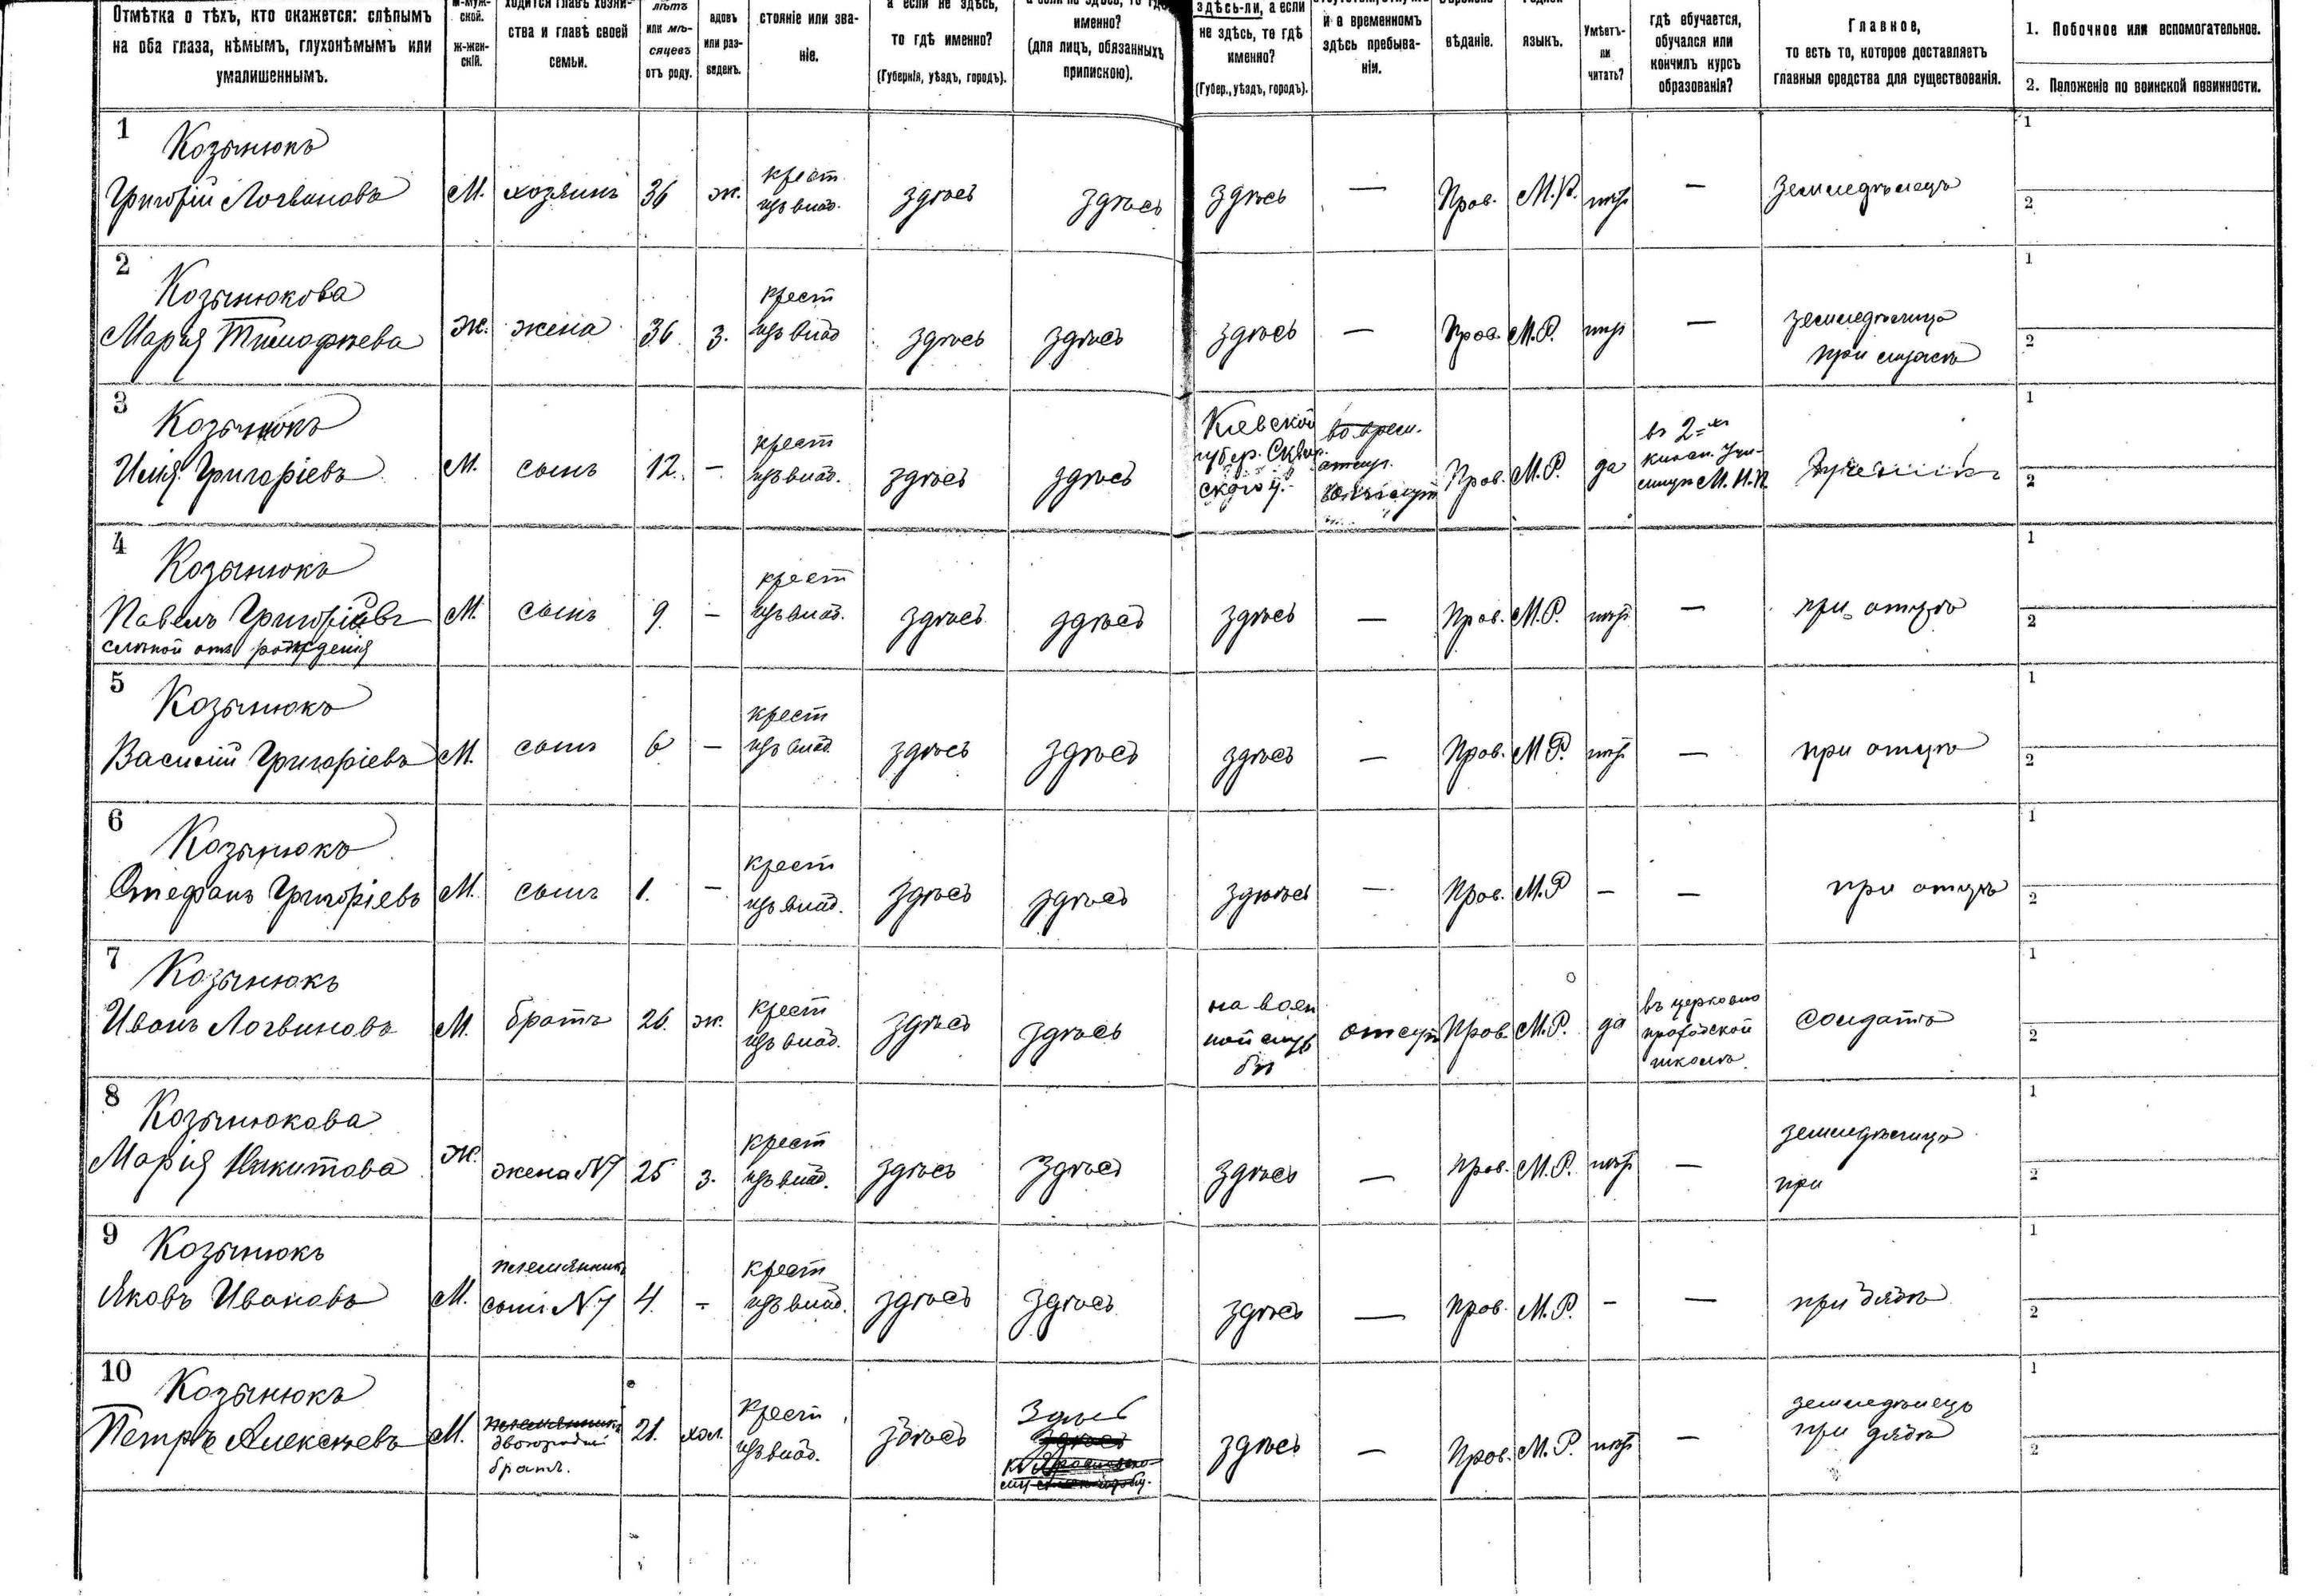 Отмѣтка о тѣхъ, кто окажется: слѣпымъ
на оба глаза, нѣмымъ, глухонѣмымъ или
умалишеннымъ.
м-муж-
ской.
ж-жен-
скій.
ходится главѣ хозяй-
ства и главѣ своей
семьи.
лѣтъ
или мѣ-
сяцевъ
отъ роду.
вдовъ
или раз-
веденъ.
стояніе или зва-
ніе.
а если не здѣсь,
то гдѣ именно?
(Губернія, уѣздъ, городъ).
именно?
(для лицъ, обязанныхъ
припискою).
здѣсь-ли, а если
не здѣсь, то гдѣ
именно?
(Губер., уѣздъ, городъ).
и о временномъ
здѣсь пребыва-
ніи.
вѣданіе.
языкъ.
Умѣетъ-
ли
читать?
гдѣ обучается,
обучался или
кончилъ курсъ
образованія?
Главное,
то есть то, которое доставляетъ
главныя средства для существованія.
1. Побочное или вспомогательное.
2. Положеніе по воинской повинности.
1
Козынюкъ
Григорій Логвиновъ М. хозяинъ 36 ж. крест. изъ влад. здѣсь здѣсь здѣсь — Прав. М.Р. нѣтъ — земледѣлецъ
1
2
2
Козынюкова
Марія Тимофѣева ж. жена 36 з. крест изъ влад здѣсь здѣсь здѣсь — Прав. М.Р. нѣтъ — земледѣлица
при мужѣ
1
2
3
Козынюкъ
Илія Григоріевъ М. сынъ 12. — крест изъ влад. здѣсь здѣсь Кіевской
губер. Сквир.
ской у. отсут. Прав. М.Р. да въ 2-хъ
М. Н. П.
1
2
4
Козынюкъ
Павелъ Григоріевъ М. сынъ 9. — крест изъ влад. здѣсь здѣсь здѣсь — Прав. М.Р. нѣтъ — при отцѣ
слѣпой отъ рожденія
1
2
5
Козынюкъ
Василій Григоріевъ М. сынъ 6 — крест изъ влад. здѣсь здѣсь здѣсь — Прав. М.Р. нѣтъ — при отцѣ
1
2
6
Козынюкъ
Стефанъ Григоріевъ М. сынъ 1. — крест изъ влад. здѣсь здѣсь здѣсь — Прав. М.Р — — при отцѣ
1
2
7
Козынюкъ
Иванъ Логвиновъ М. братъ 26. ж. крест изъ влад. здѣсь здѣсь на воен
ной служ
бѣ отсут Прав. М.Р. да въ церковно
приходской
школѣ солдатъ
1
2
8
Козынюкова
Марія Никитова ж. жена №7 25 з. крест изъ влад. здѣсь здѣсь здѣсь — Прав. М.Р. нѣтъ — земледѣлица
при
1
2
9
Козынюкъ
Яковъ Ивановъ М. племянникъ
сынъ №7 4. - крест изъ влад. здѣсь здѣсь здѣсь — Прав. М.Р. — — при дядѣ
1
2
10
Козынюкъ
Петръ Алексѣевъ М. племянникъ
двоюродный
братъ. 21. хол. крест изъ влад. здѣсь здѣсь
здѣсь
здѣсь — Прав. М.Р. нѣтъ — земледѣлецъ
при дядѣ
1
2